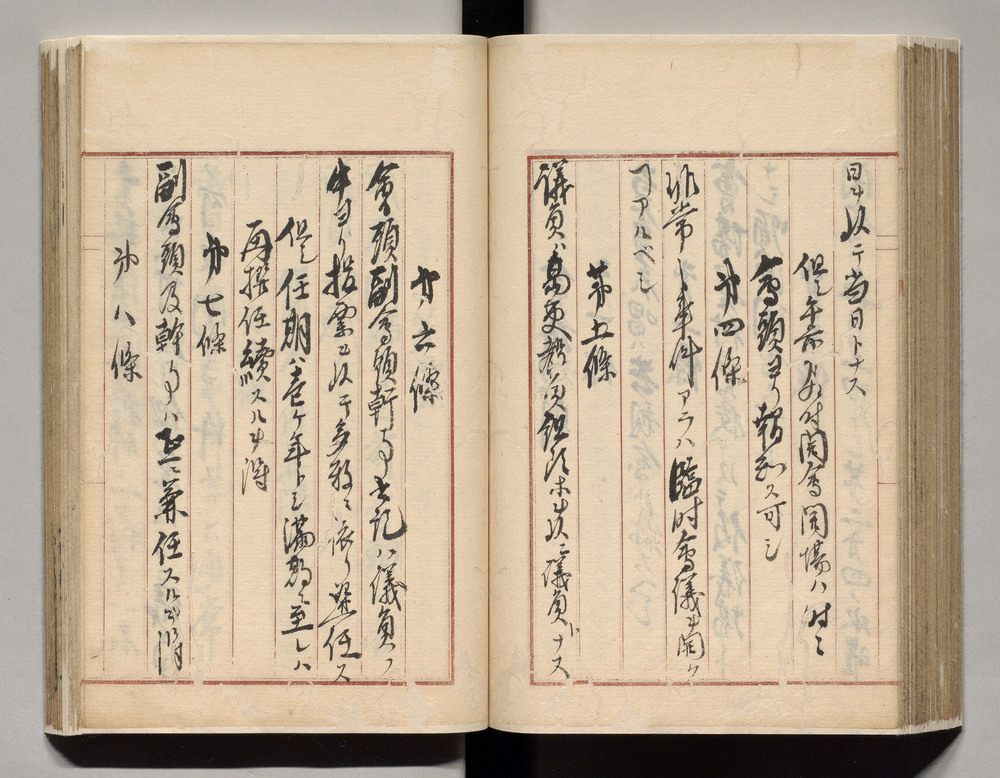 日ヲ以テ当日トナス
但シ午前八時開會閉場ハ時々
會頭ヨリ報知ス可シ
第四條
非常ノ事件アラハ臨時會儀ヲ開ク
ヿアルベシ
第五條
議員ハ島吏
ヲ以テ議員トナス
第六條
會頭副會頭幹事書記ハ儀員ノ
中ヨリ投票ヲ以テ多数ニ依リ選任ス
但シ任期ハ壱ケ年トシ満期ニ至レハ
再撰任續スルヲ得
第七條
副會頭及幹事ハ 兼任スルヲ得
第八條